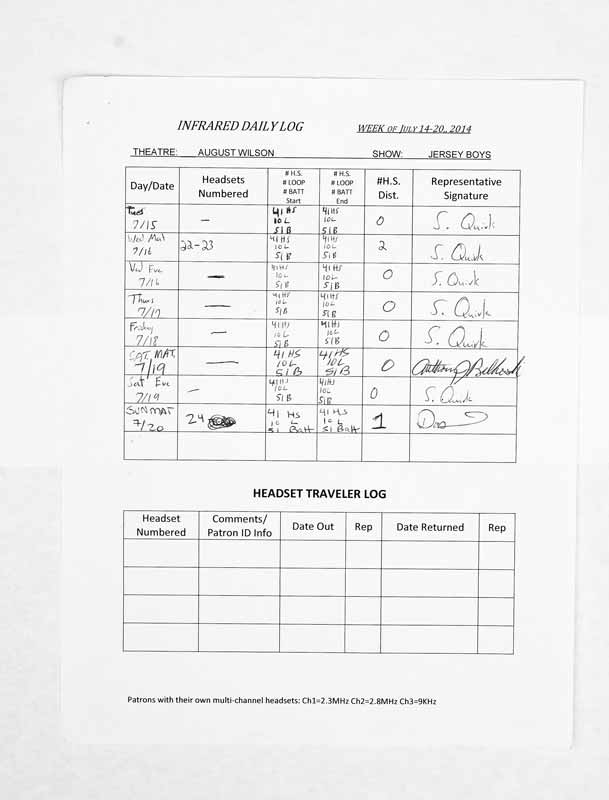 INFRARED DAILY LOG WEEK OF JULY 14-20, 2014
THEATRE: AUGUST WILSON SHOW: JERSEY BOYS
Day/Date Headsets Numbered # H.S. # LOOP # BATT Start # H.S. # LOOP # BATT End #H.S. Dist. Representative Signature
Tues 7/15 — 41 HS 10L 51B 41HS 10L 51B 0 S. Quirk
Wed Mat 7/16 22-23 41HS 10L 51B 41HS 10L 51B 2 S. Quirk
Wed Eve 7/16 — 41HS 10L 51B 41HS 10L 51B 0 S. Quirk
Thurs 7/17 — 41HS 10L 51B 41HS 10L 51B 0 S. Quirk
Friday 7/18 — 41HS 10L 51B 41HS 10L 51B 0 S. Quirk
SAT. MAT. 7/19 — 41 HS 10L 51B 41 HS 10L 51B 0 Anthony
Sat Eve 7/19 — 41HS 10L 51B 41HS 10L 51B 0 S. Quirk
SUN MAT 7/20 24 41 HS 10 L 51 Batt 41 HS 10 L 51 Batt 1
HEADSET TRAVELER LOG
Headset Numbered Comments/ Patron ID Info Date Out Rep Date Returned Rep
Patrons with their own multi-channel headsets: Ch1=2.3MHz Ch2=2.8MHz Ch3=9KHz